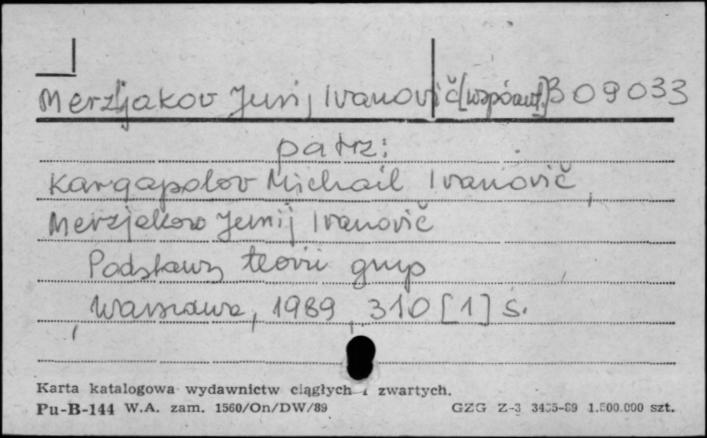 Merzljakov Jurij Ivanovič [współaut.] B 09033
patrz:
Kargapolov Michail Ivanovič,
Merzjakow Jurnij Ivanovič
Podstawy teorii grup
Warszawa, 1989, 310 [1] s.
Karta katalogowa wydawnictw ciągłych i zwartych.
Pu-B-144 W.A. zam. 1560/On/DW/89 GZG Z-3 3435-89 1.500.000 szt.